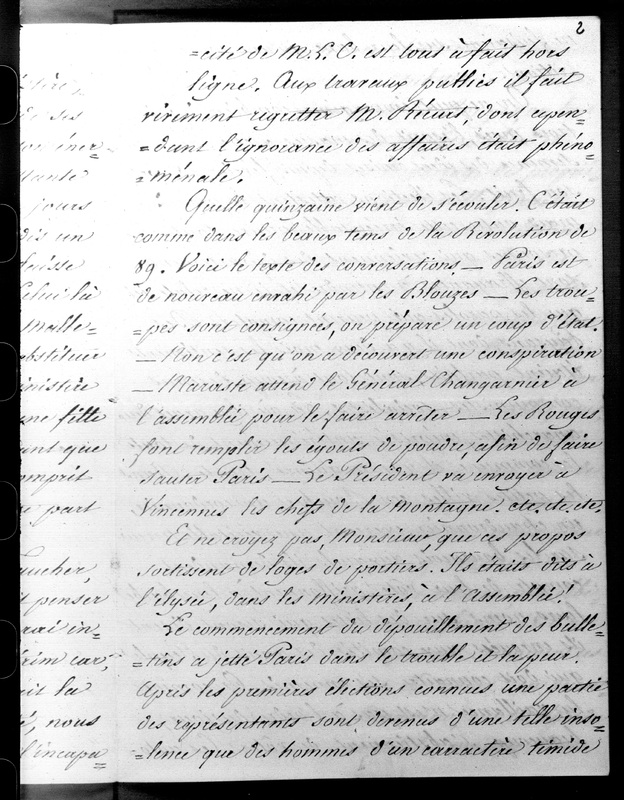 2
=cité de M. L. C. est tout à fait hors
ligne. Aux travaux publics il fait
vivement regretter M. Récurt, dont cepen=
=dant l'ignorance des affaires était phéno=
=ménale.
Quelle quinzaine vient de s'écouler. C'était
comme dans les beaux tems de la Révolution de
89. Voici le texte des conversations — Paris est
de nouveau envahi par les Blouzes — Les trou=
=pes sont consignées, on prépare un coup d'état.
— Non c'est qu'on a découvert une conspiration
— Maraste attend le Général Changarnier à
l'assemblée pour le faire arrêter — Les Rouges
font remplir les égouts de poudre, afin de faire
sauter Paris — Le Président va envoyer à
Vincennes les chefs de la Montagne. etc. etc. etc.
Et ne croyez pas, Monsieur, que ces propos
sortissent de loges de portiers. Ils étaits dits à
l'élysée, dans les ministères, à l'Assemblée!
Le commencement du dépouillement des bulle=
=tins a jetté Paris dans le trouble et la peur.
Après les premières élections connues une partie
des représentants sont devenus d'une telle inso=
=lence que des hommes d'un carractère timide
de ses
jours
dis un
Malle=
obstituer
inistère
une fille
ant que
omprit
part
t penser
rai in=
rim car,
it la
é, nous
l'incapa=